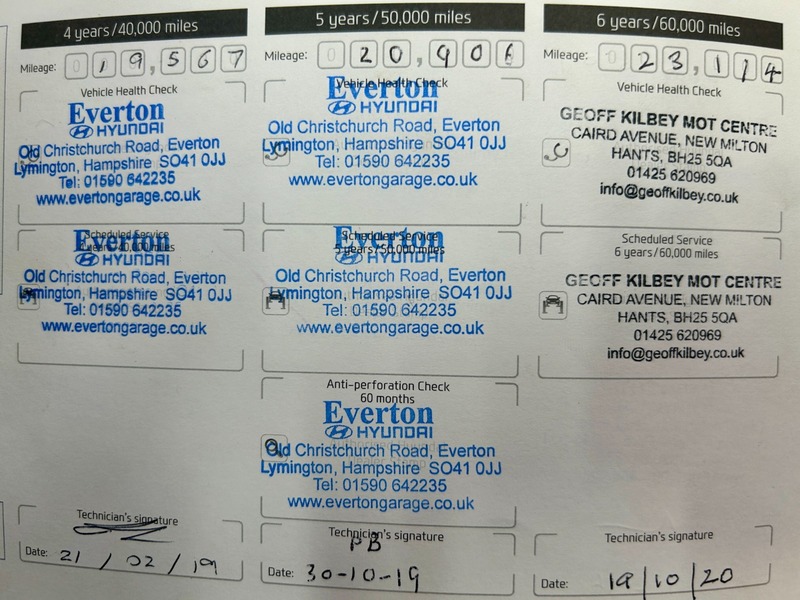 4 years/40,000 miles
Mileage: 019,567
Vehicle Health Check
Everton
HYUNDAI
Old Christchurch Road, Everton
Lymington, Hampshire SO41 0JJ
Tel: 01590 642235
www.evertongarage.co.uk
Scheduled Service
4 years/40,000 miles
Everton
HYUNDAI
Old Christchurch Road, Everton
Lymington, Hampshire SO41 0JJ
Tel: 01590 642235
www.evertongarage.co.uk
Technician's signature
Date: 21 / 02 / 19
5 years/50,000 miles
Mileage: 020,906
Vehicle Health Check
Everton
HYUNDAI
Old Christchurch Road, Everton
Lymington, Hampshire SO41 0JJ
Tel: 01590 642235
www.evertongarage.co.uk
Scheduled Service
5 years/50,000 miles
Everton
HYUNDAI
Old Christchurch Road, Everton
Lymington, Hampshire SO41 0JJ
Tel: 01590 642235
www.evertongarage.co.uk
Anti-perforation Check
60 months
Everton
HYUNDAI
Old Christchurch Road, Everton
Lymington, Hampshire SO41 0JJ
Tel: 01590 642235
www.evertongarage.co.uk
Technician's signature
PB
Date: 30-10-19
6 years/60,000 miles
Mileage: 023,114
Vehicle Health Check
GEOFF KILBEY MOT CENTRE
CAIRD AVENUE, NEW MILTON
HANTS, BH25 5QA
01425 620969
info@geoffkilbey.co.uk
Scheduled Service
6 years/60,000 miles
GEOFF KILBEY MOT CENTRE
CAIRD AVENUE, NEW MILTON
HANTS, BH25 5QA
01425 620969
info@geoffkilbey.co.uk
Technician's signature
Date: 19/10/20